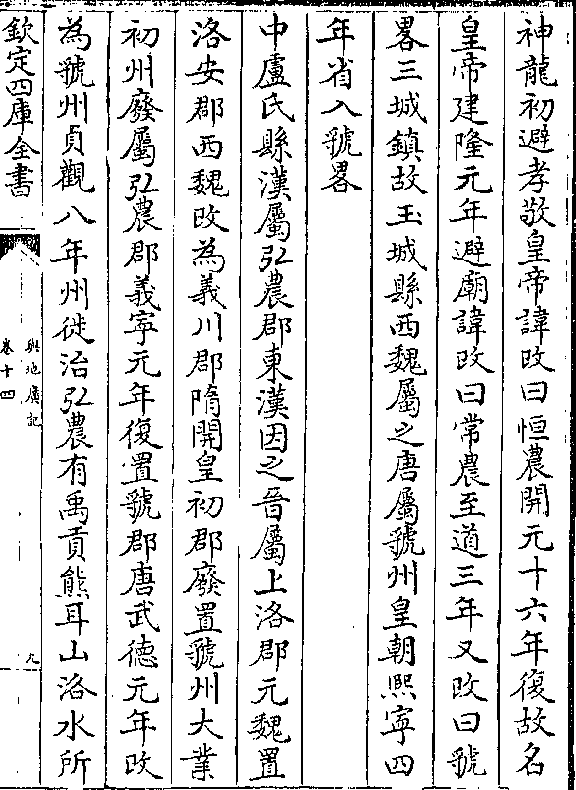 神龍初避孝敬皇帝諱改曰恒農開元十六年復故名
皇帝建隆元年避廟諱改曰常農至道三年又改曰虢
畧三城鎮故玉城縣西魏屬之唐屬虢州皇朝熙寧四
年省入虢畧
中盧氏縣漢屬弘農郡東漢因之晉屬上洛郡元魏置
洛安郡西魏改為義川郡隋開皇初郡廢置虢州大業
初州廢屬弘農郡義寧元年復置虢郡唐武德元年改
為虢州貞觀八年州徙治弘農有禹貢熊耳山洛水所
欽定四庫全書
輿地廣記
卷十四
九